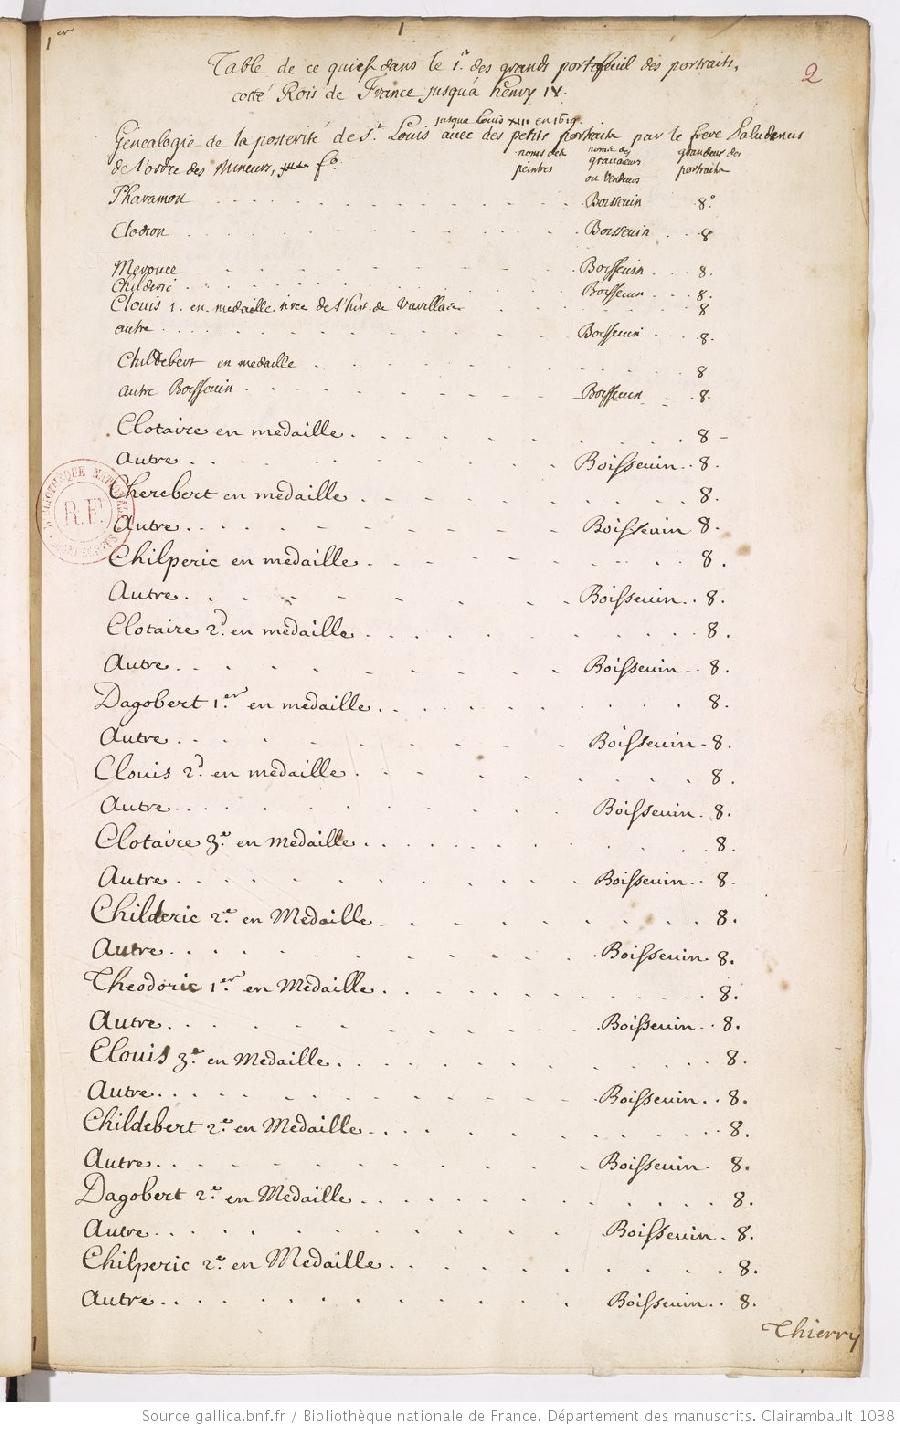 1er
1
2
Table de ce qui est dans le 1r. des grands portefeuil des portraits,
cotté Rois de France jusqu'a henry IV.
jusque Louis XIII en 1619.
Genealogie de la posterité de St. Louis avec des petits portraits par le frere
de l'ordre des Mineurs, fo.
noms des peintres
noms des graveurs ou vendeurs
grandeur des portraits
Pharamon . . . Boisseuin 8o
Clodion . . . Boisseuin . . 8
Merouée . . . Boisseuin . . . 8.
Childeric . . . Boisseuin . . . 8.
Clouis 1. en medaille tirée de l'hist. de Vavillac . . . 8
autre . . . Boisseuin . . 8.
Childebert en medaille . . . 8
autre Boisseuin . . . Boisseuin . . 8.
Clotaire en medaille . . . 8 -
Autre . . . Boisseuin . . 8.
Cherebert en medaille . . . 8.
Autre . . . Boisseuin 8.
Chilperic en medaille . . . 8.
Autre . . . Boisseuin . . 8.
Clotaire 2d. en medaille . . . 8.
Autre . . . Boisseuin . . 8.
Dagobert 1.er en medaille . . . 8.
Autre . . . Boisseuin - 8.
Clouis 2d. en medaille . . . 8.
Autre . . . Boisseuin . 8.
Clotaire 3.e en Medaille . . . 8.
Autre . . . Boisseuin . . 8.
Childeric 2.e en Medaille . . . 8.
Autre . . . Boisseuin . 8.
Theodoric 1.er en Medaille . . . 8.
Autre . . . Boisseuin . . 8.
Clouis 3.e en Medaille . . . 8.
Autre . . . Boisseuin . . 8.
Childebert 2.e en Medaille . . . 8.
Autre . . . Boisseuin . 8.
Dagobert 2.e en Medaille . . . 8.
Autre . . . Boisseuin . . 8.
Chilperic 2.e en Medaille . . . 8.
Autre . . . Boisseuin . . 8.
Thierry
BIBLIOTHÈQUE NATIONALE
R.F.
Source gallica.bnf.fr / Bibliothèque nationale de France. Département des manuscrits. Clairambault 1038